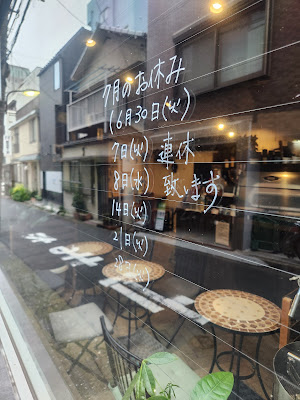 7月のお休み
(6月30日(火)
7日(火) 連休
8日(水) 致します
14日(火)
21日(火)